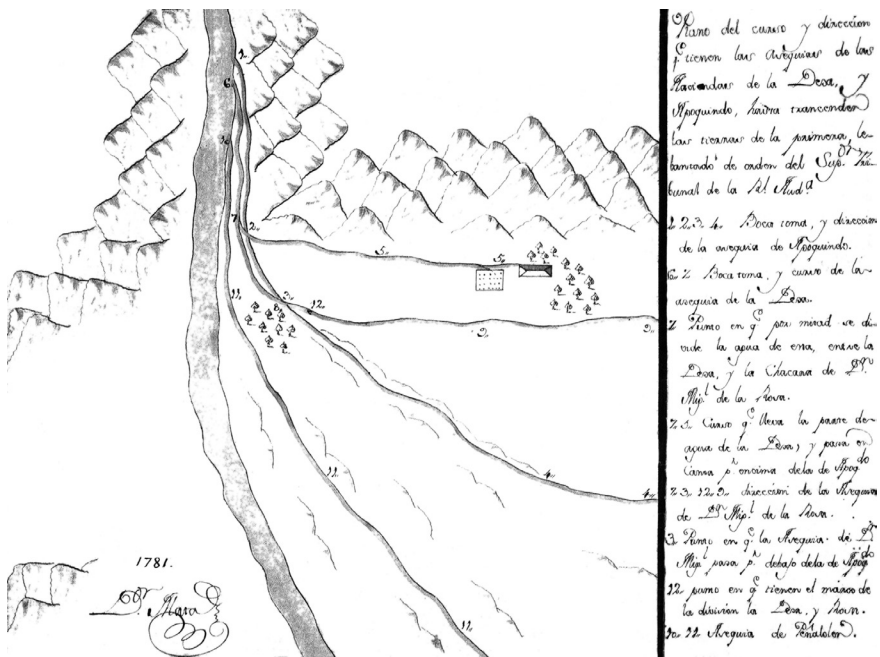 Plano del curso y direccion
q.e tienen las Asequias de las
Haciendas de la Desa, y
Apoquindo, hasta transcender
las tierras de la primera, le
bantado de orden del Sup.or Tri-
bunal de la R.l Aud.a
1. 2. 3. 4. Boca toma, y direccion
de la asequia de Apoquindo.
6. 7. Boca toma, y curso de la
asequia de la Desa.
7 Punto en q.e por mitad se di-
vide la agua de esta, entre la
Desa, y la Chacara de D.n
Mig.l de la
7. 5. Curso q.e lleva la parte de
agua de la Desa, y pasa en
Canoa p.r encima dela de Apoq.do
7. 3. 12. 9. direccion de la Asequia
de D.n Mig.l de la
3. Punto en q.e la Asequia de D.n
Mig.l pasa p.r debajo dela de Apoq.do
12. punto en q.e tienen el marco de
la division la Desa, y
10. 11. Asequia de Peñalolen.
2.
6
10
7
2.
5.
5.
11.
3.
8.
12.
9.
9.
4.
4.
11.
11.
1781.